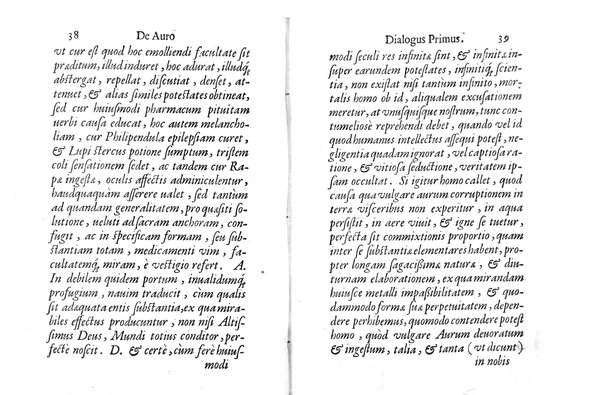 38 De Auro
vt cur est quod hoc emolliendi facultate sit
præditum, illud induret, hoc adurat, illudq́;
abstergat, repellat, discutiat, denset, at-
tenuet, & alias similes potestates obtineat,
sed cur huiusmodi pharmacum pituitam
uerbi causa educat, hoc autem melancho-
liam, cur Philipendula epilepsiam curet,
& Lupi stercus potione sumptum, tristem
coli sensationem sedet, ac tandem cur Ra-
pæ ingesta, oculis affectis adminiculentur,
haudquaquam asserere ualet, sed tantum
ad quandam generalitatem, pro quæsiti so-
lutione, ueluti ad sacram anchoram, con-
fugit, ac in specificam formam, seu sub-
stantiam totam, medicamenti vim, fa-
cultatemq́; miram, è vestigio refert. A.
In debilem quidem portum, inualidumq́;
profugium, nauim traducit, cum qualis
sit adæquata entis substantia, ex qua mira-
biles effectus producuntur, non nisi Altis-
simus Deus, Mundi totius conditor, per-
fectè noscit. D. & certè, cùm ferè huius-
modi
Dialogus Primus. 39
modi seculi res infinitæ sint, & infinitæ in-
super earundem potestates, infinitiq́; scien-
tia, non existat nisi tantum infinito, mor-
talis homo ob id, aliqualem excusationem
meretur, at unusquisque nostrum, tunc con-
tumeliosè reprehendi debet, quando vel id
quod humanus intellectus assequi potest, ne-
gligentia quadam ignorat, vel captiosa ra-
tione, & vitiosa seductione, veritatem ip-
sam occultat. Si igitur homo callet, quod
causa qua vulgare aurum corruptionem in
terræ visceribus non experitur, in aqua
persistit, in aere viuit, & igne se tuetur,
perfecta sit commixtionis proportio, quam
inter se substantiæ elementares habent, pro-
pter longam sagacissimæ naturæ, & diu-
turnam elaborationem, ex qua mirandam
huiusce metalli impassibilitatem, & quo-
dammodo formæ suæ perpetuitatem, depen-
dere perhibemus, quomodo contendere potest
homo, quòd vulgare Aurum deuoratum
& ingestum, talia, & tanta (vt dicunt)
in nobis